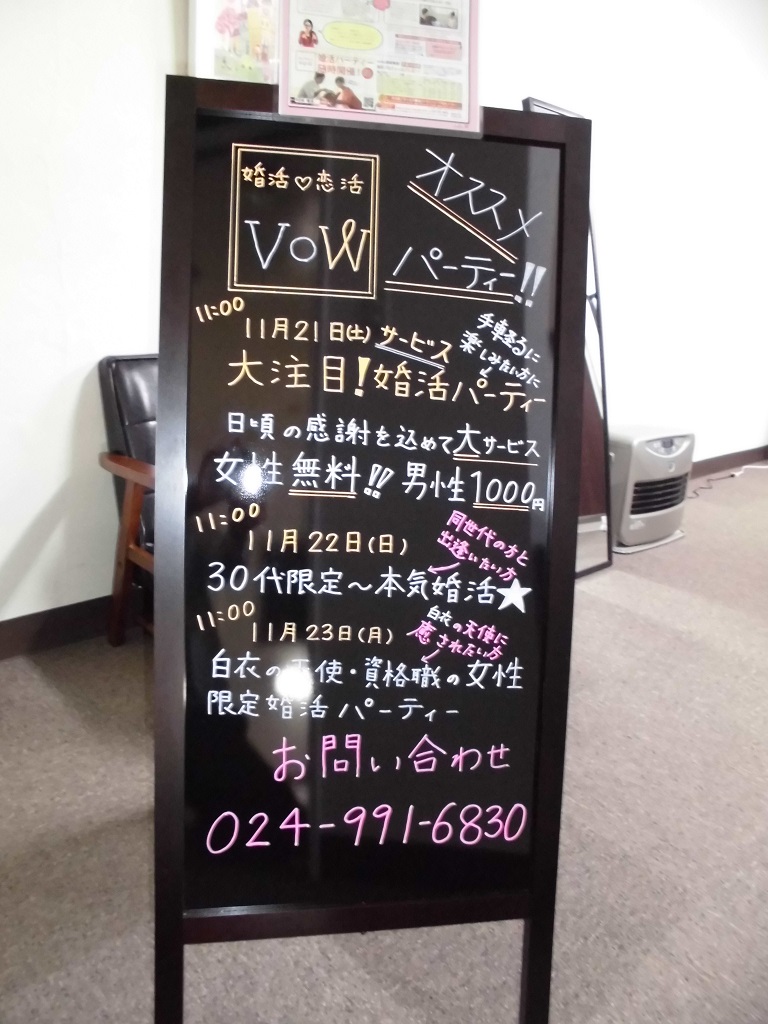 婚活パーティー
随時開催!
婚活♡恋活
VOW
オススメ
パーティー!!
11:00
11月21日(土)サービス
手軽るに
楽しみたい方に
大注目!婚活パーティー
日頃の感謝を込めて大サービス
女性無料!! 男性1000円
11:00
11月22日(日)
同世代の方と
出逢いたい方
30代限定～本気婚活★
11:00
11月23日(月)
白衣の天使に
癒されたい方
白衣の天使・資格職の女性
限定婚活パーティー
お問い合わせ
024-991-6830